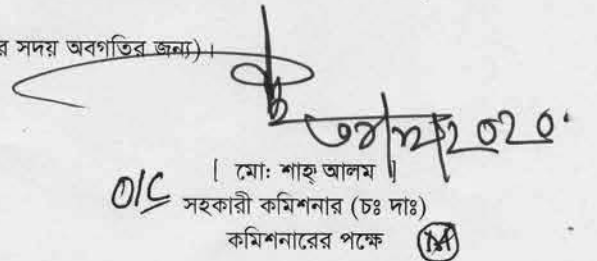 র সদয় অবগতির জন্য)।
[ মো: শাহ্ আলম ]
O/C
সহকারী কমিশনার (চঃ দাঃ)
কমিশনারের পক্ষে